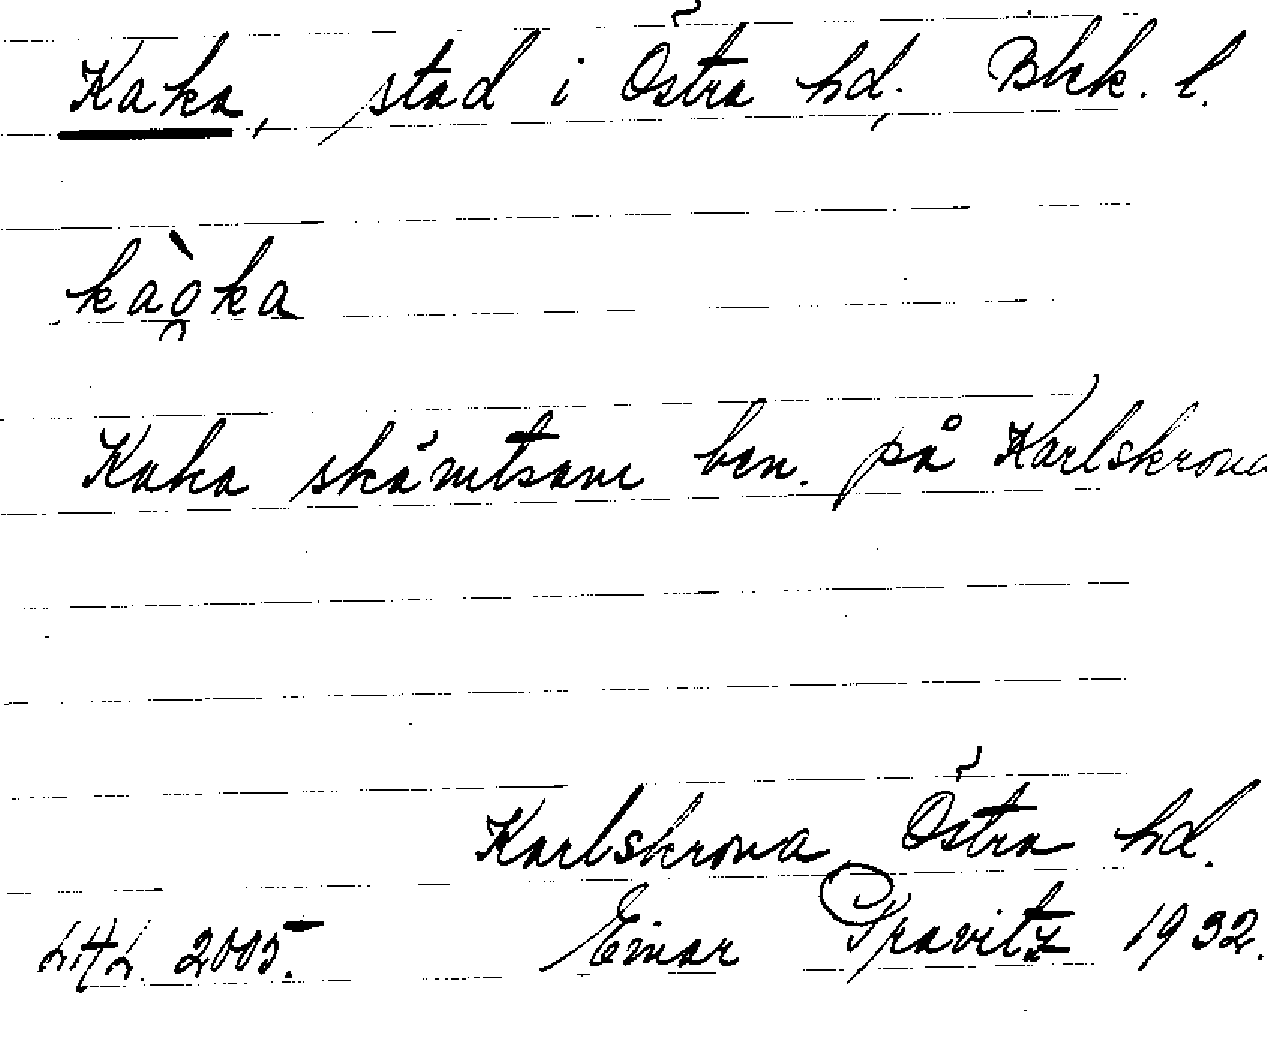 Kaka, stad i Östra hd. Blek. l.
kaò̯ka
Kaka skämtsam ben. på Karlskrona
Karlskrona, Östra hd.
2005. Einar Pravitz 1932.